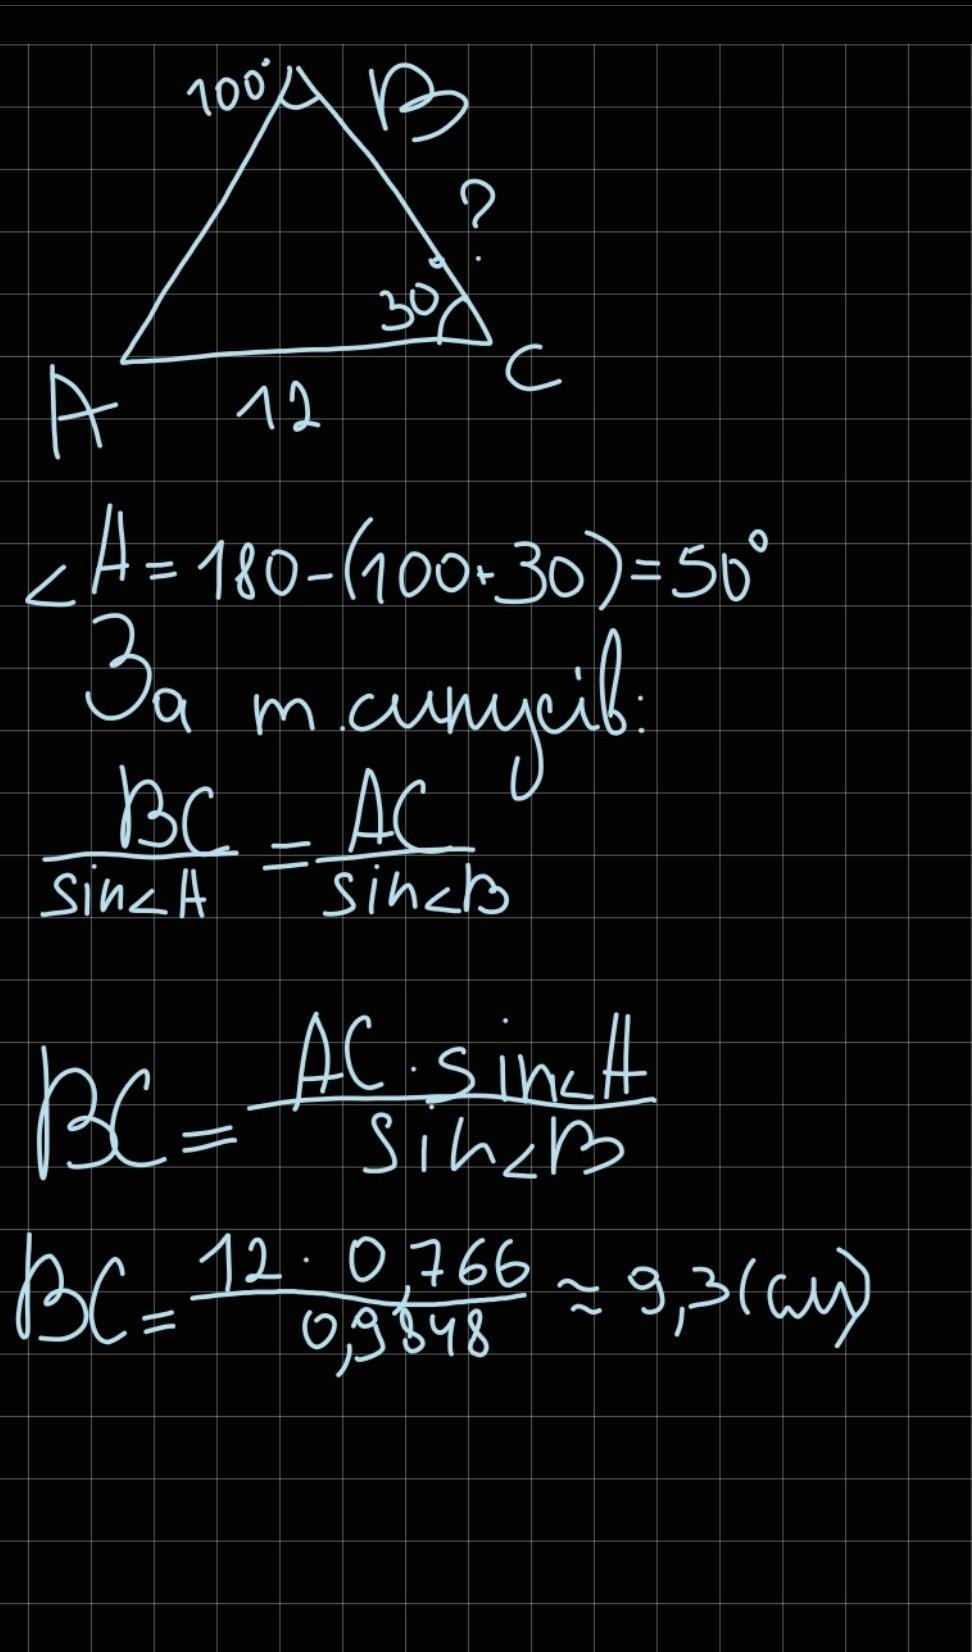 100°
B
?
30°
A
12
C
∠A = 180 - (100+30) = 50°
За т.синусів:
BC/sin∠A = AC/sin∠B
BC = AC · sin∠A / sin∠B
BC = 12 · 0,766 / 0,9848 ≈ 9,3(см)